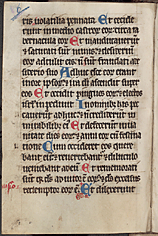 ris volatilia pennata Et cecide
runt in medio castror eor circa ta
bernacula eor Et manducaverunt
et saturati sunt nimis et desideriu
eor attulit eis n sunt fraudati a de
siderio suo Adhuc esce eor erant
in ore ipsor et ira dei ascendit super
eos Et occidit pingues eor et electos
isrl impedivit In omnibus hiis pec
caverunt adhuc et n crediderunt in
mirabilibus Et defecerunt in vani
tate dies eor et anni eor cu festina
tione Cum occideret eos quere
bant eum et revertebantur et diluculo
veniebant ad eum Et rememorati
sunt quia deus adiutor est eor et deus excelsus
redemptor eor Et dilexerunt